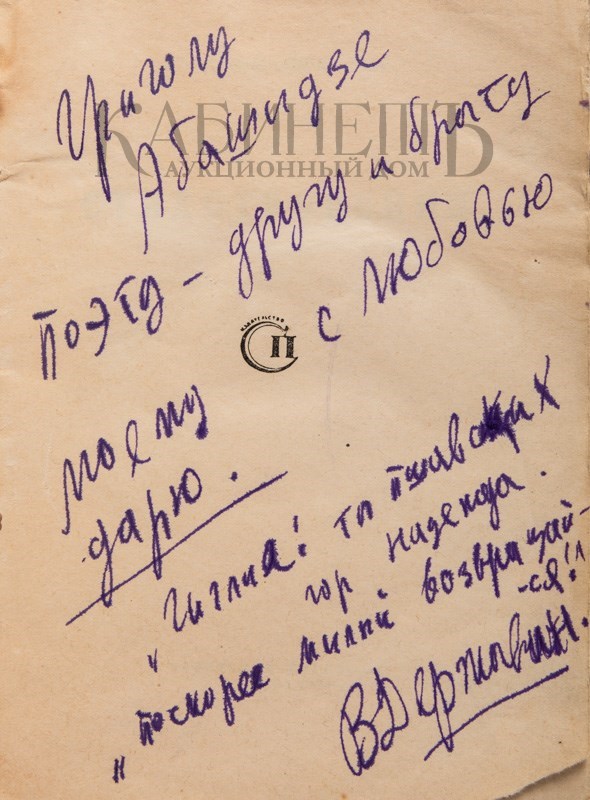 Григолу
Абашидзе
КАБИНЕТЪ
АУКЦИОННЫЙ ДОМ
поэту – другу и брату
с любовью
ИЗДАТЕЛЬСТВО
СП
моему
дарю.
"Гиглиа! ты пшавских
гор надежда.
"поскорее милый возвращай-
-ся!"
ВДержавин.